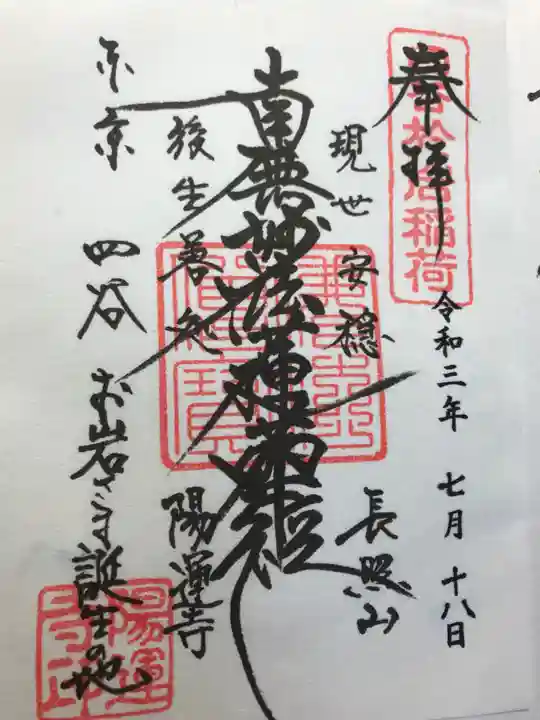 奉拝
令和三年 七月 十八日
現世安穏 長照山
南無妙法蓮華経
後生善処 陽運寺
東京 四谷 お岩さま誕生の地
稲荷
陽運寺印